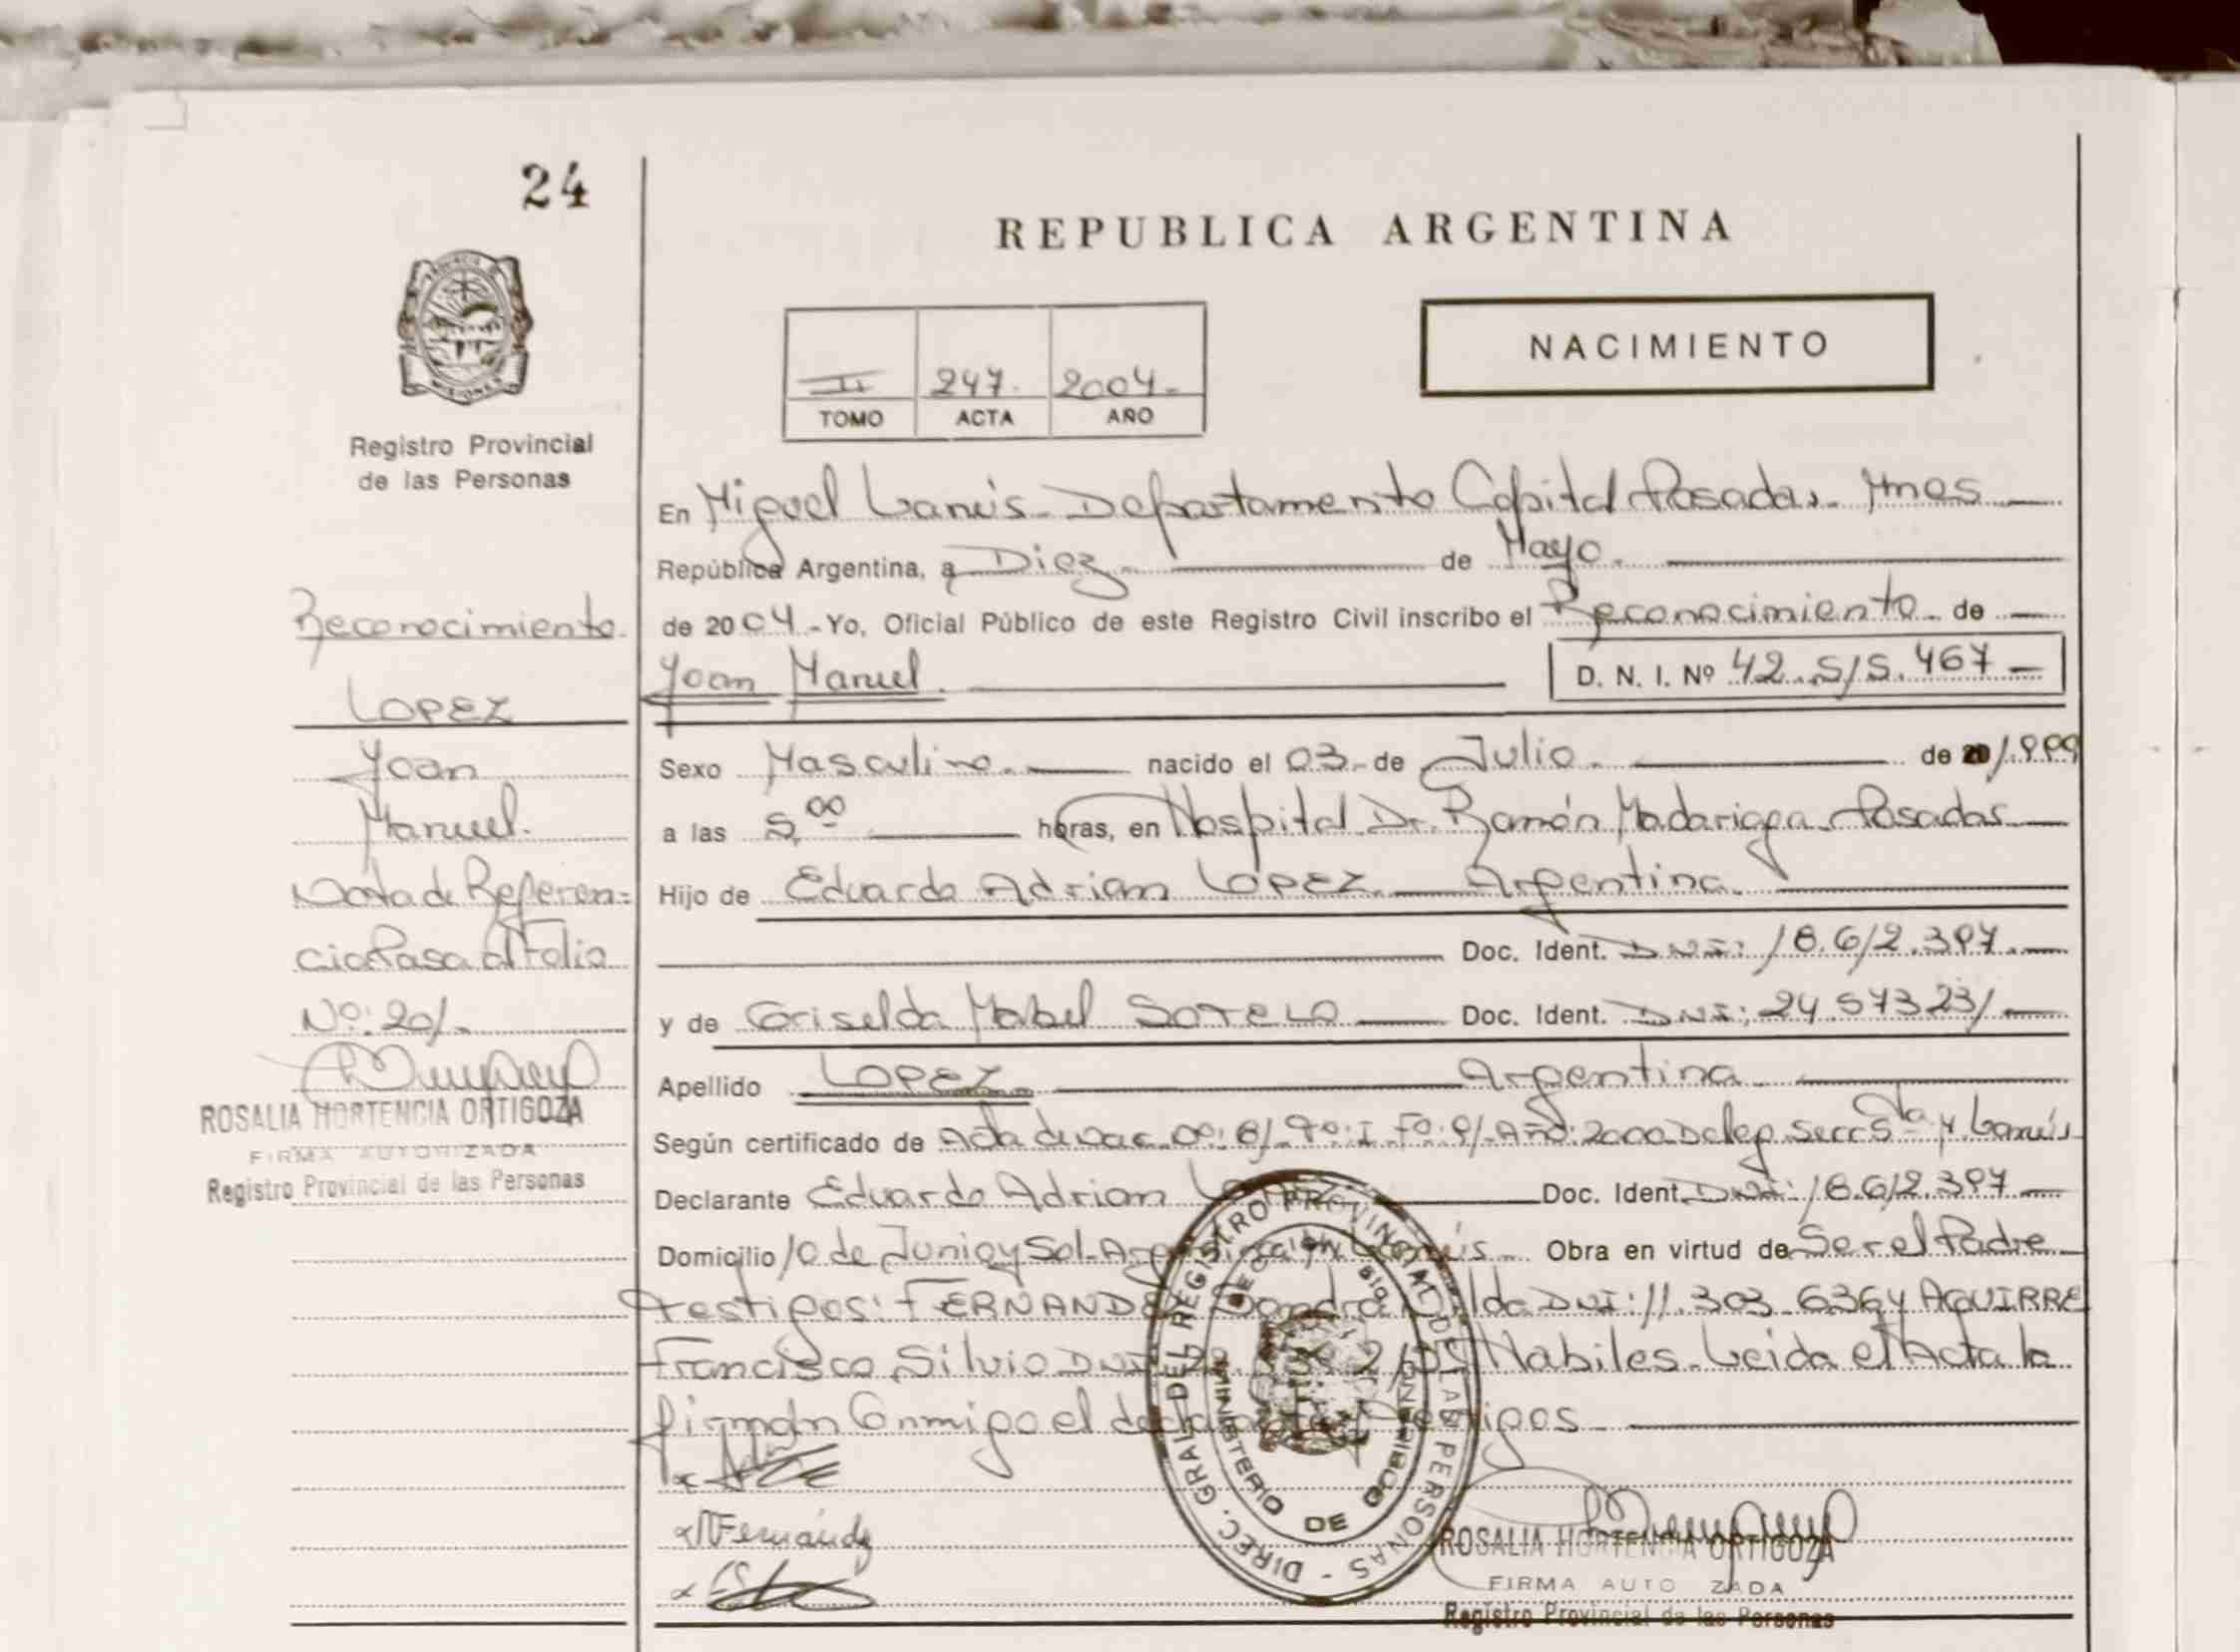 24
REPUBLICA ARGENTINA
NACIMIENTO
II 247. 2004.-
TOMO ACTA AÑO
Registro Provincial
de las Personas
Reconocimiento.
LOPEZ
Joan
Manuel.
Nota de Referen=
cia Pasa al Folio
Nº: 201.
ROSALIA HORTENCIA ORTIGOZA
FIRMA AUTORIZADA
Registro Provincial de las Personas
En Miguel Lanús - Departamento Capital Posadas - Mnes
República Argentina, a Diez. de Mayo.
de 2004.- Yo, Oficial Público de este Registro Civil inscribo el Reconocimiento de
Joan Manuel. D. N. I. Nº 42.515.467
Sexo Masculino. nacido el 03 de Julio. de 20 1.999
a las 5,00 horas, en Hospital Dr. Ramón Madariaga - Posadas
Hijo de Eduardo Adrian LOPEZ. Argentina.
Doc. Ident. DNI: 18.612.397.
y de Griselda Mabel SOTELO Doc. Ident. DNI: 24.573.231
Apellido LOPEZ Argentina.
Según certificado de Acta de Nac. Nº: 81 Tº: I Fº: 91 Año: 2000 Deleg. Secc 5ta y Lanús
Declarante Eduardo Adrian Doc. Ident. DNI: 18.612.397
Domicilio 10 de Junio y Sol. Lanús Obra en virtud de Ser el Padre
Testigos: FERNANDEZ DNI: 11.303.636 y AGUIRRE
Francisco Silvio DNI Habiles. Leida el Acta la
firman Conmigo el declarante Testigos
Fernández
DIREC. GRAL DEL REGISTRO PROVINCIAL DE LAS PERSONAS
MINISTERIO DE GOBIERNO
ROSALIA HORTENCIA ORTIGOZA
FIRMA AUTO ZADA
Registro Provincial de las Personas